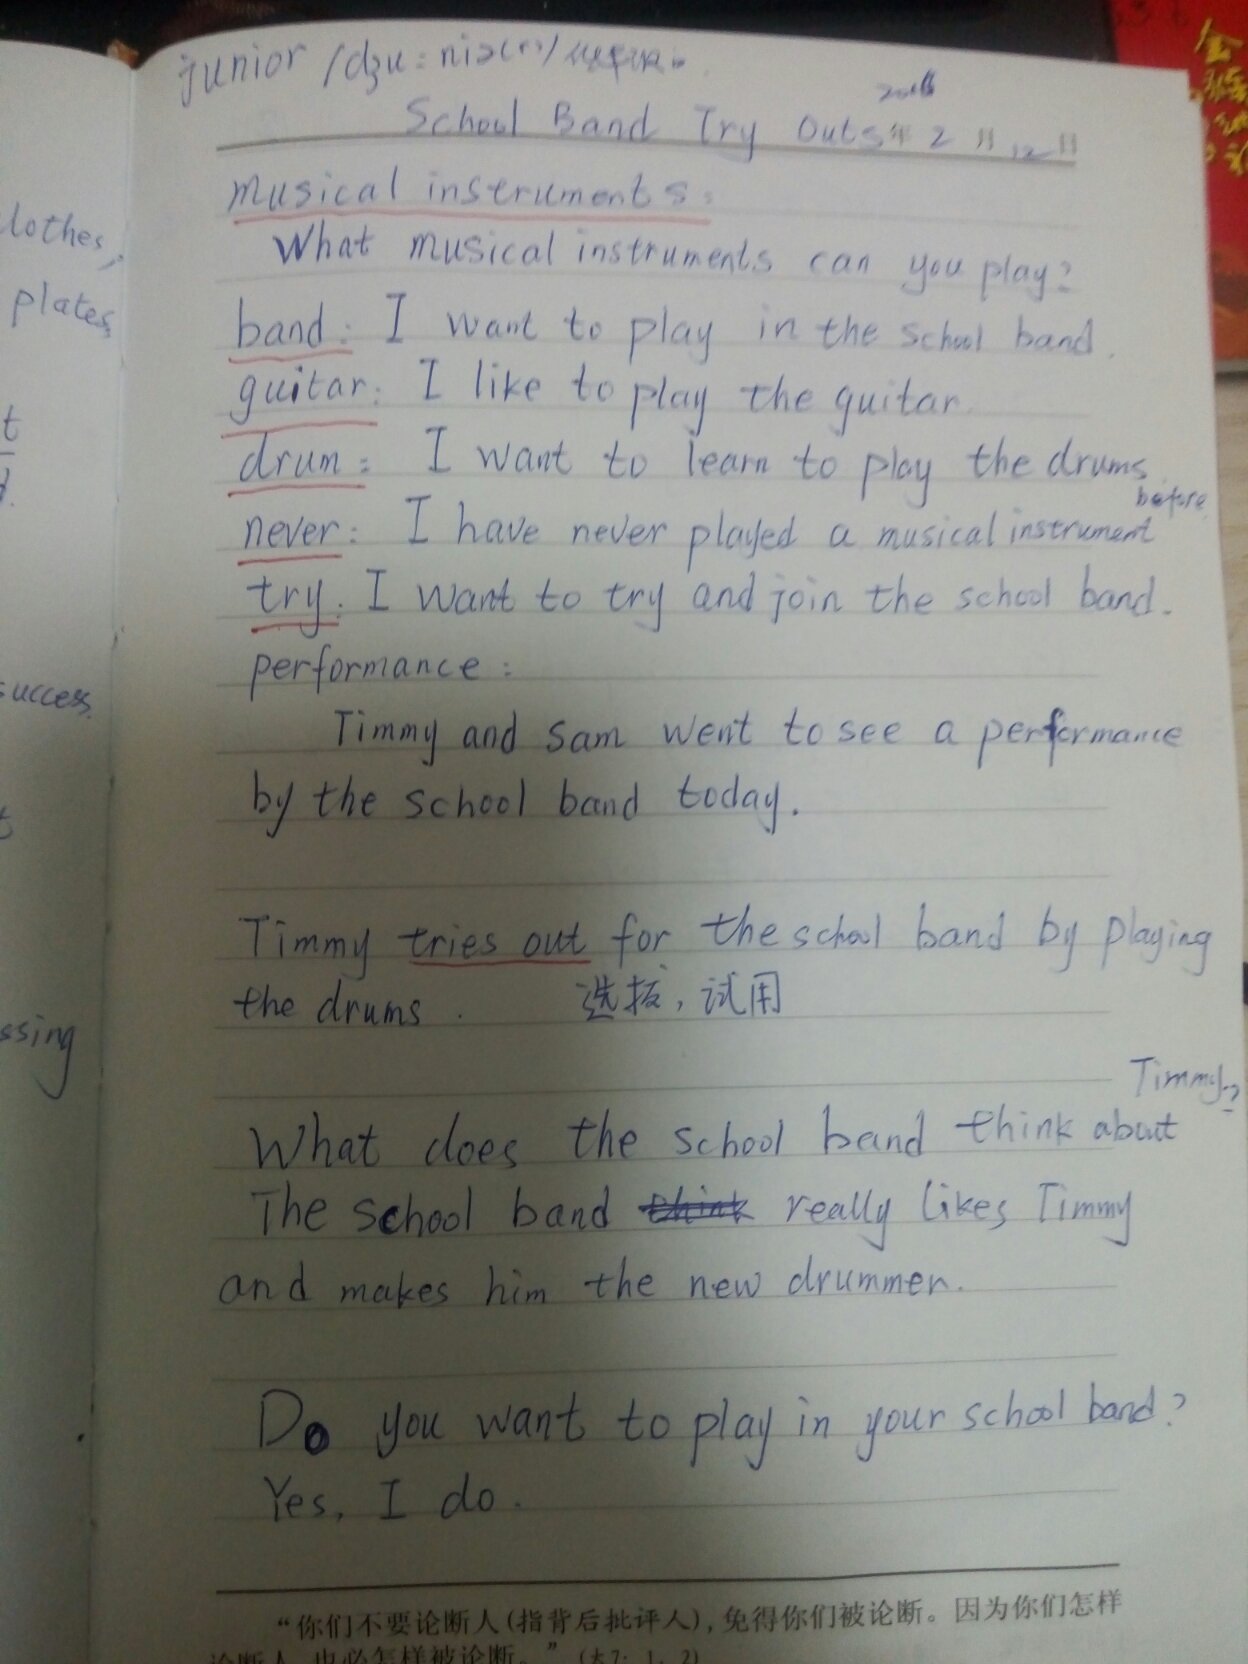 junior /dʒu:niə(r)/
2016
School Band Try Outs 年 2 月 12 日
musical instruments:
What musical instruments can you play?
band: I want to play in the school band.
guitar: I like to play the guitar.
drum: I want to learn to play the drums
before.
never: I have never played a musical instrument
try: I want to try and join the school band.
performance:
Timmy and Sam went to see a performance
by the school band today.
Timmy tries out for the school band by playing
the drums. 选拔,试用
Timmy?
What does the school band think about
The school band think really likes Timmy
and makes him the new drummer.
Do you want to play in your school band?
Yes, I do.
“你们不要论断人(指背后批评人),免得你们被论断。因为你们怎样
论断人,也必怎样被论断。”(太7:1,2)
lothes,
plates
t
success.
t
ssing